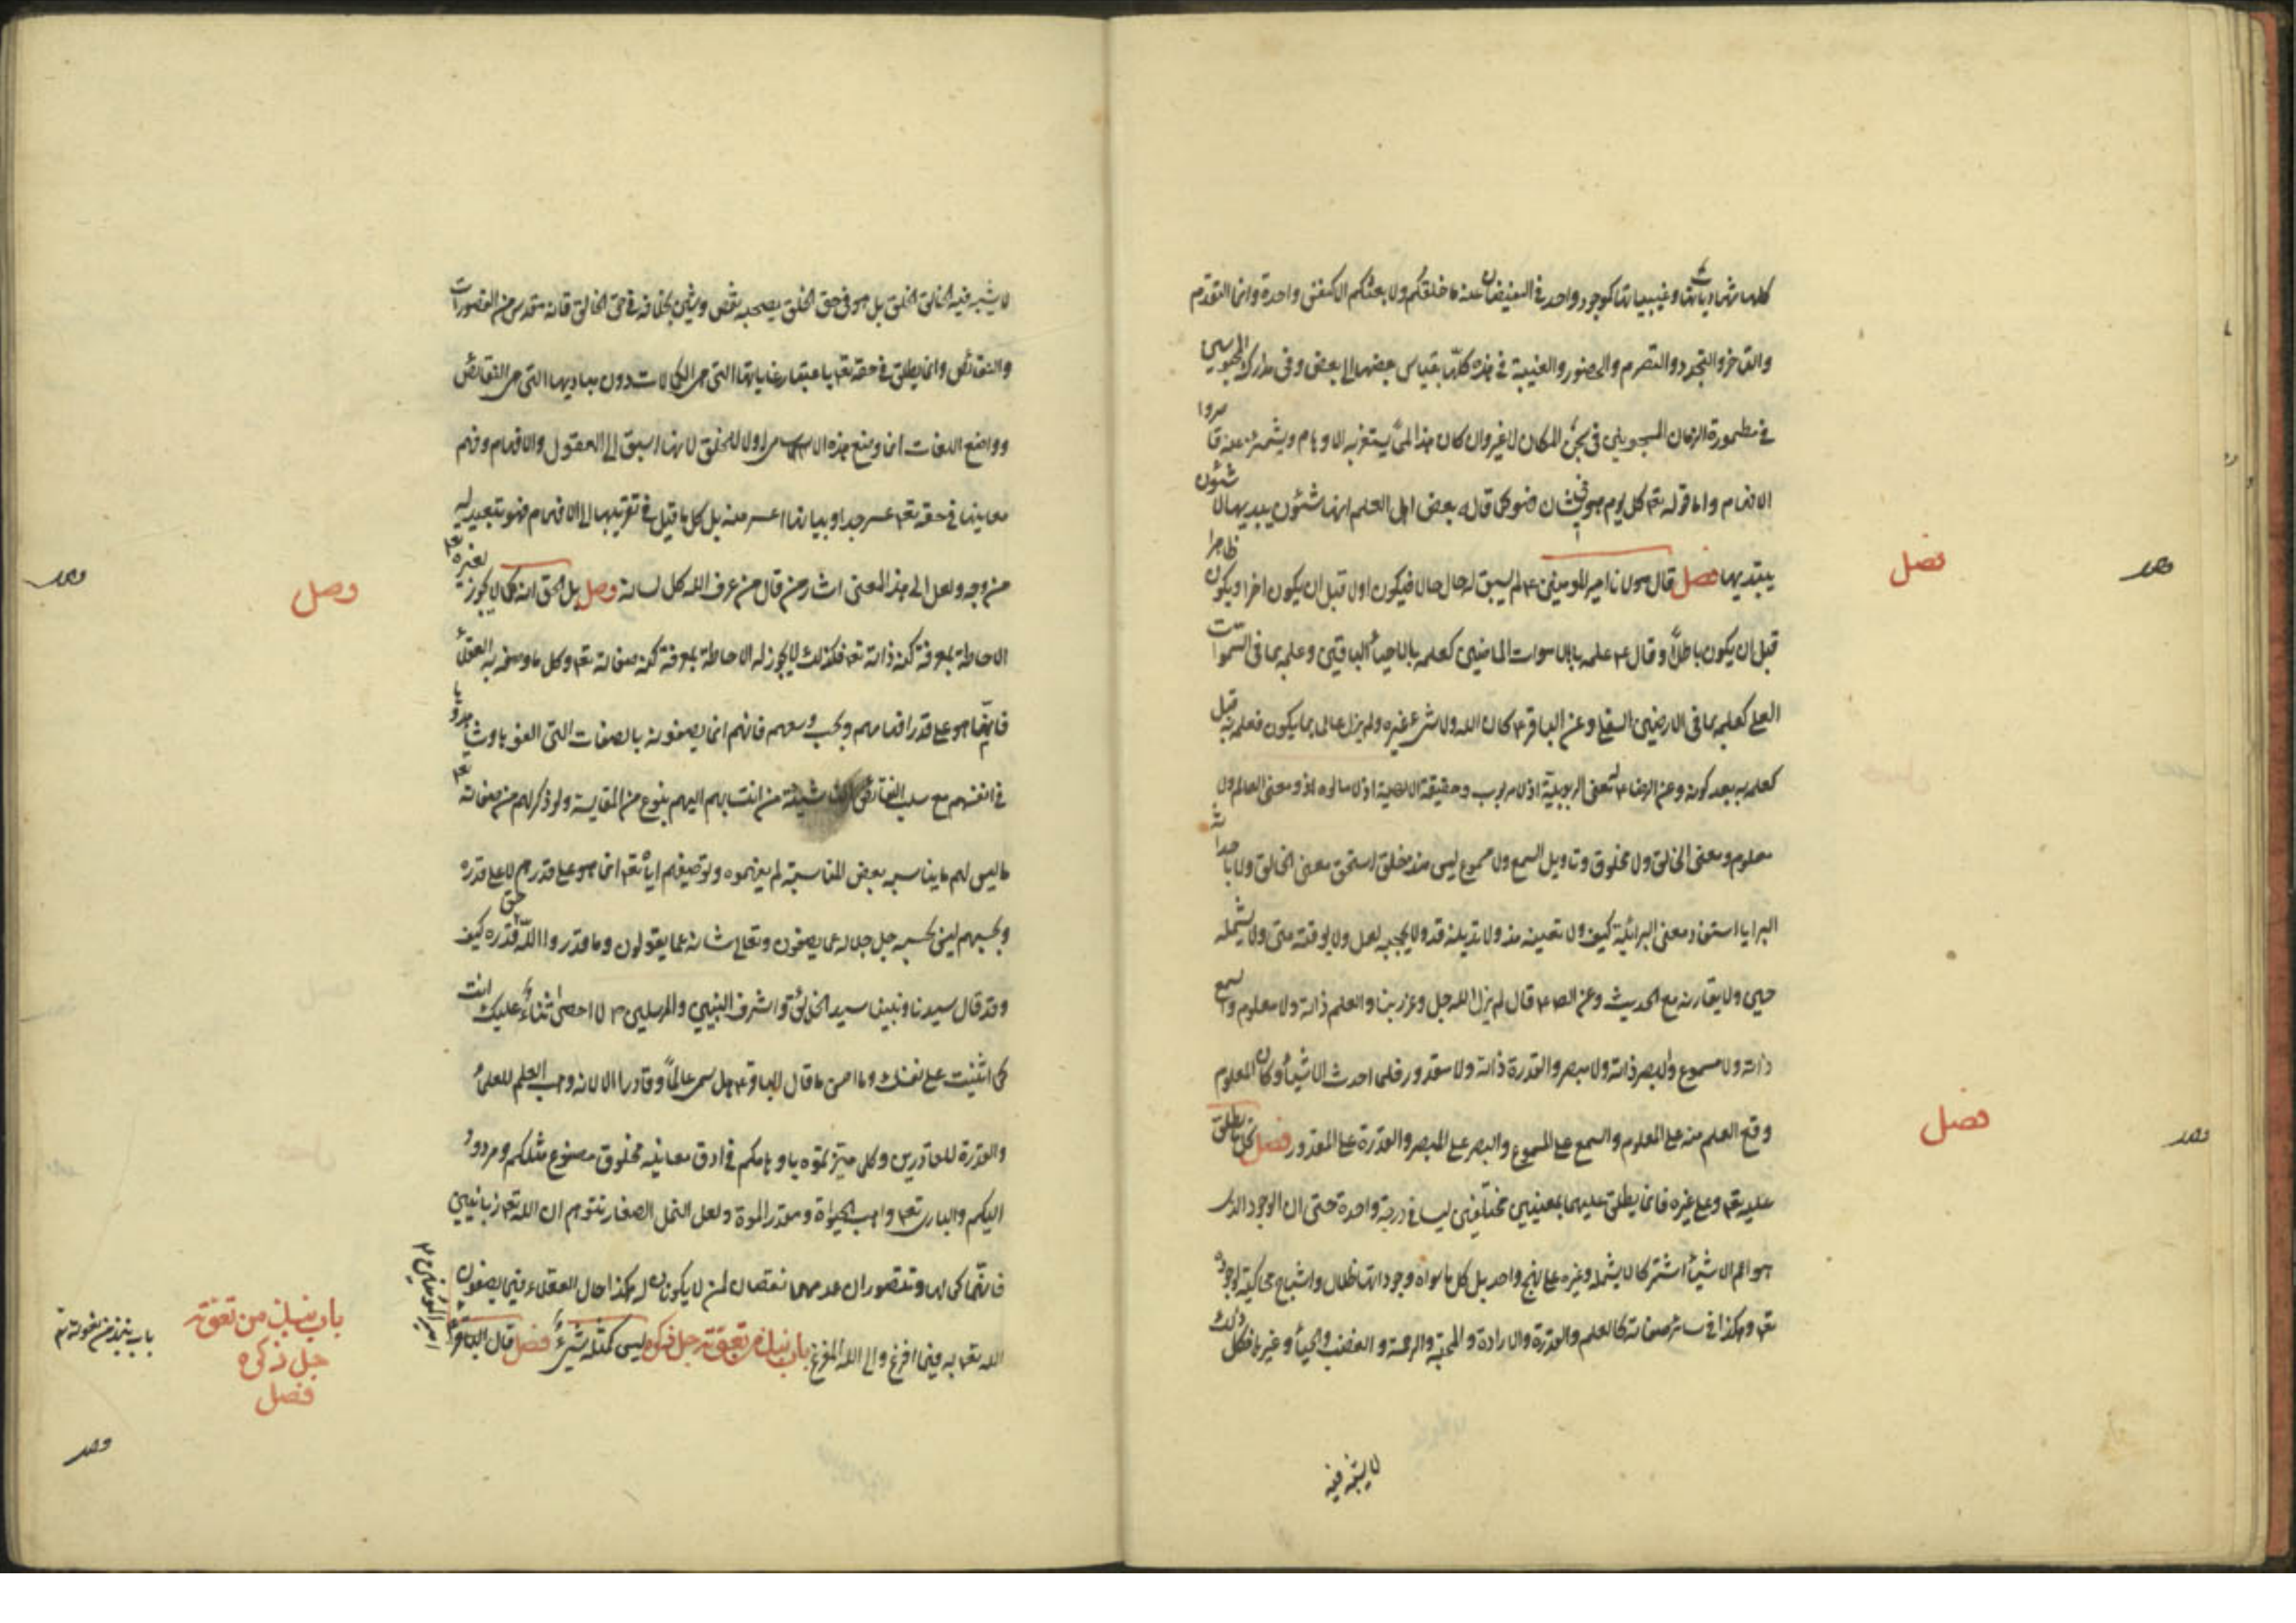 كلها شهادياتها وغيبياتها كموجود واحد في الفيضان عنه ما خلقكم ولا بعثكم الا كنفس واحدة وانما التقدم
والتاخر والتجدد والتصرم والحضور والغيبة في هذه كلها بقياس بعضها الى بعض وفي مدارك المحبوسين
في مطمورة الزمان المسجونين في سجن المكان لا غير وان كان هذا لمما يستغربه الاوهام ويشمئز عنه قاصروا
الافهام واما قوله تعه كل يوم هو في شان فهو كما قاله بعض اهل العلم انها شئون يبديها لا شئون
يبتديها فصل قال مولانا امير المومنين ع لم يسبق له حال حالا فيكون اولا قبل ان يكون اخرا ويكون ظاهرا
قبل ان يكون باطنا وقال ع علمه بالاموات الماضين كعلمه بالاحياء الباقين وعلمه بما في السموات
العلى كعلمه بما في الارضين السفلى وعن الباقر ع كان الله ولا شيء غيره ولم يزل عالما بما يكون فعلمه به قبل كونه
كعلمه به بعد كونه وعن الرضا ع له معنى الربوبية اذ لا مربوب وحقيقة الالهية اذ لا مالوه ومعنى العالم ولا
معلوم ومعنى الخالق ولا مخلوق وتاويل السمع ولا مسموع ليس منذ خلق استحق معنى الخالق ولا باحداثه
البرايا استفاد معنى البرائية كيف ولا تغيبه مذ ولا تدنيه قد ولا يحجبه لعل ولا يوقته متى ولا يشمله
حين ولا يقارنه مع الحديث وعن الصادق ع قال لم يزل الله جل وعز ربنا والعلم ذاته ولا معلوم والسمع
ذاته ولا مسموع والبصر ذاته ولا مبصر والقدرة ذاته ولا مقدور فلما احدث الاشياء وكان المعلوم
وقع العلم منه على المعلوم والسمع على المسموع والبصر على المبصر والقدرة على المقدور فصل كل ما يطلق
عليه تعه وعلى غيره فانما يطلق عليهما بمعنيين مختلفين ليسا في درجة واحدة حتى ان الوجود الذي
هو اعم الاشياء اشتراكا لا يشمله وغيره على نهج واحد بل كل ما سواه وجوداتها ظلال واشباح محاكية لوجوده
تعه وهكذا في سائر صفاته كالعلم والقدرة والارادة والمحبة والرحمة والغضب والحياء وغيرها فكل ذلك
لا يشبه فيه
فصل
فصل
لا يشبه فيه الخالق الخلق بل هو في حق الخلق يصحبه نقص وشين بخلافه في حق الخالق فانه مقدس من القصورات
والنقائص وانما يطلق في حقه تعه باعتبار غاياتها التي هي الكمالات دون مباديها التي هي النقائص
وواضع اللغات انما وضع هذه الاسامي اولا للخلق لانها اسبق الى العقول والافهام وفهم
معانيها في حقه تعه عسر جدا وبيانها اعسر منه بل كل ما قيل في تقريبها الى الافهام فهو تبعيد له
من وجه ولعل الى هذا المعنى اشار من قال من عرف الله كل لسانه وصل بل الحق انه كما لا يجوز لغيره تعه
الاحاطة بمعرفة كنه ذاته تعه فكذلك لا يجوز له الاحاطة بمعرفة كنه صفاته تعه وكل ما وصفه به العقلاء
فانما هو على قدر افهامهم وبحسب وسعهم فانهم انما يصفونه بالصفات التي الفوها وشاهدوها
في انفسهم مع سلب النقائص الناشية من انتسابها اليهم بنوع من المقايسة ولو ذكر لهم من صفاته تعه
ما ليس لهم ما يناسبه بعض المناسبة لم يفهموه وتوصيفهم اياه تعه انما هو على قدرهم لا على قدره
وبحسبهم ليس بحسبه جل جلاله عما يصفون وتعالى شانه عما يقولون وما قدروا الله حق قدره كيف
وقد قال سيدنا ونبينا سيد الخلائق واشرف النبيين والمرسلين ص لا احصى ثناء عليك انت
كما اثنيت على نفسك وما احسن ما قال الباقر ع هل سمى عالما وقادرا الا لانه وهب العلم للعلماء
والقدرة للقادرين وكل ما ميزتموه باوهامكم في ادق معانيه مخلوق مصنوع مثلكم ومردود
اليكم والبارى تعه واهب الحيواة ومقدر الموت ولعل النمل الصغار تتوهم ان الله تعه زبانيين
فانهما كمالها وتتصور ان عدمهما نقصان لمن لا يكونان له هكذا حال العقلاء فيما يصفون
الله تعه به فيما افرغ والى الله المفزع باب نبذ من نعوته جل ذكره ليس كمثله شيء فصل قال الباقر
وصل
باب نبذ من نعوته
جل ذكره
فصل